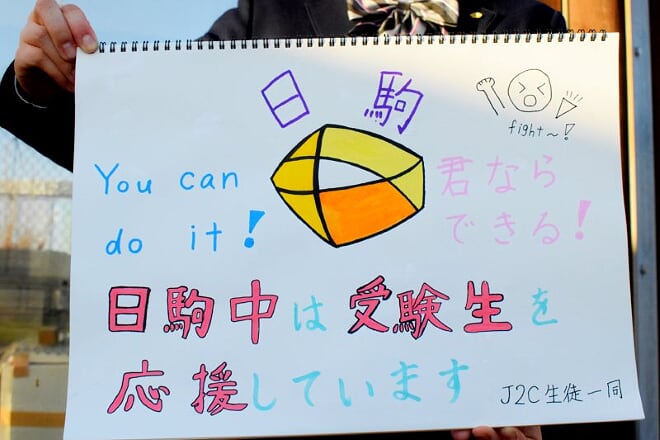 日駒
fight～!
You can
do it!
君なら
できる!
日駒中は受験生を
応援しています
J2C生徒一同